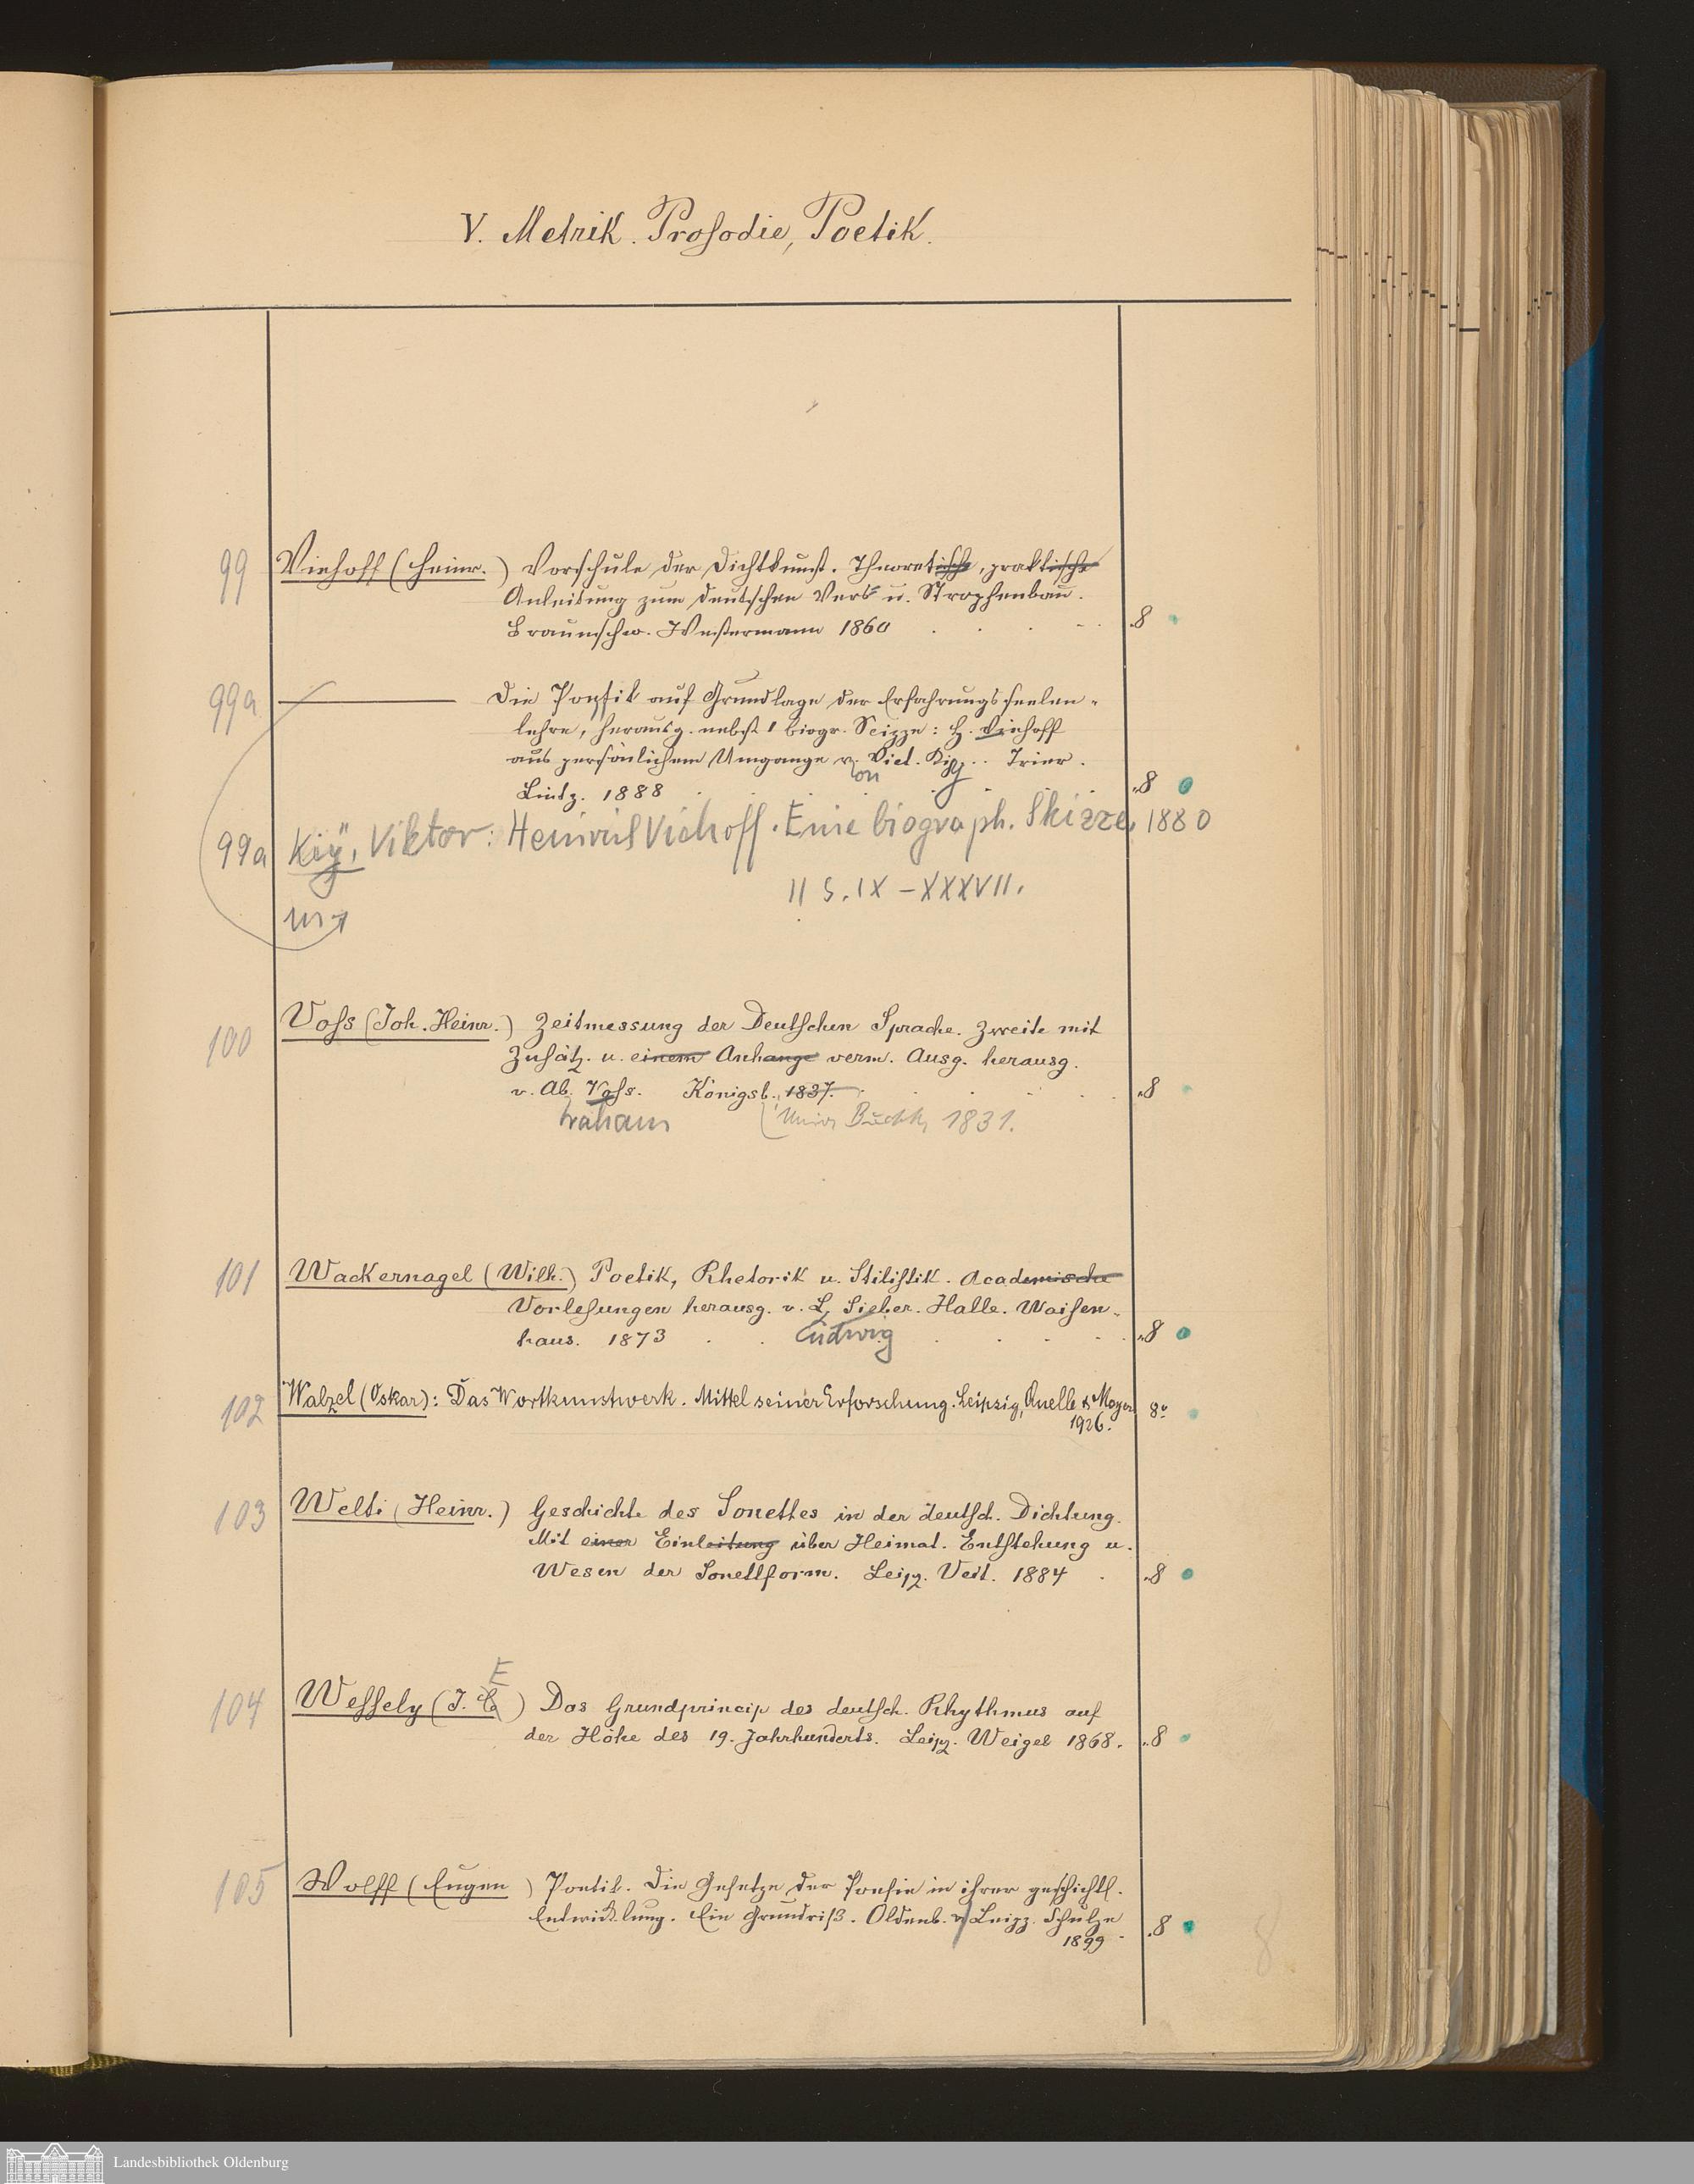 V. Metrik. Prosodie, Poetik.
99 Viehoff (Heinr.) Vorschule der Dichtkunst. Theoretische, praktische
Anleitung zum deutschen Vers= u. Strophenbau.
Braunschw. Westermann 1860 8
99a Die Poetik auf Grundlage der Erfahrungsseelen-
lehre, herausg. nebst 1 biogr. Scizze: H. Viehoff
aus persönlichem Umgange v. Vict. Kiy. Trier.
on
Lintz. 1888 8
99a Kiÿ, Viktor: Heinrich Viehoff. Eine biograph. Skizze, 1880
II S. IX - XXXVII.
in
100 Voss (Joh. Heinr.) Zeitmessung der Deutschen Sprache. Zweite mit
Zusätz. u. einem Anhange verm. Ausg. herausg.
v. Ab. Voss. Königsb. 1837. 8
raham Univ. Buchh. 1831.
101 Wackernagel (Wilh.) Poetik, Rhetorik u. Stilistik. Academische
Vorlesungen herausg. v. L. Sieber. Halle. Waisen-
haus. 1873 Ludwig 8
102 Walzel (Oskar): Das Wortkunstwerk. Mittel seiner Erforschung. Leipzig, Quelle & Meyer 8°
1926.
103 Welti (Heinr.) Geschichte des Sonettes in der deutsch. Dichtung.
Mit einer Einleitung über Heimat. Entstehung u.
Wesen der Sonettform. Leipz. Veit. 1884 8
E
104 Wessely (J. ) Das Grundprincip des deutsch. Rhythmus auf
der Höhe des 19. Jahrhunderts. Leipz. Weigel 1868. 8
105 Wolff (Eugen) Poetik. Die Gesetze der Poesie in ihrer geschichtl.
Entwicklung. Ein Grundriß. Oldenb. u. Leipz. Schulze 8
1899
8
Landesbibliothek Oldenburg